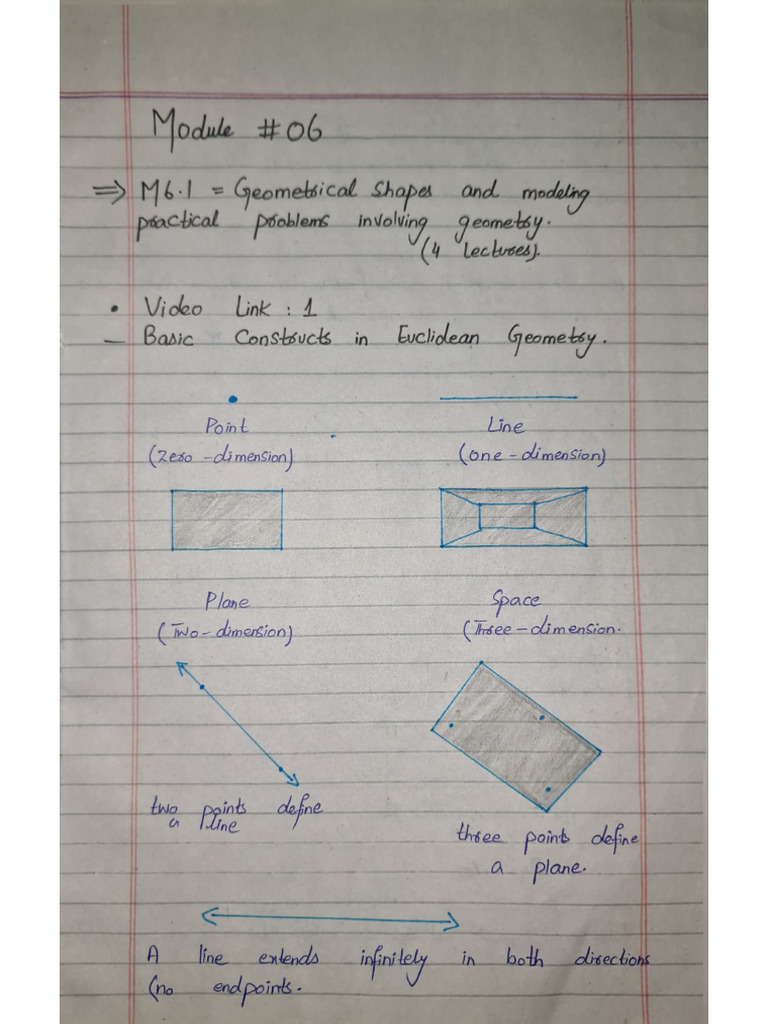 Module #06
⇒ M6.1 = Geometrical Shapes and modeling
practical problems involving geometry.
(4 Lectures).
• Video Link : 1
– Basic Constructs in Euclidean Geometry.
Point
Line
(Zero-dimension)
(one-dimension)
Plane
Space
(Two-dimension)
(Three-dimension.
two points define
a line
three points define
a plane.
A line extends infinitely in both directions
(no endpoints.